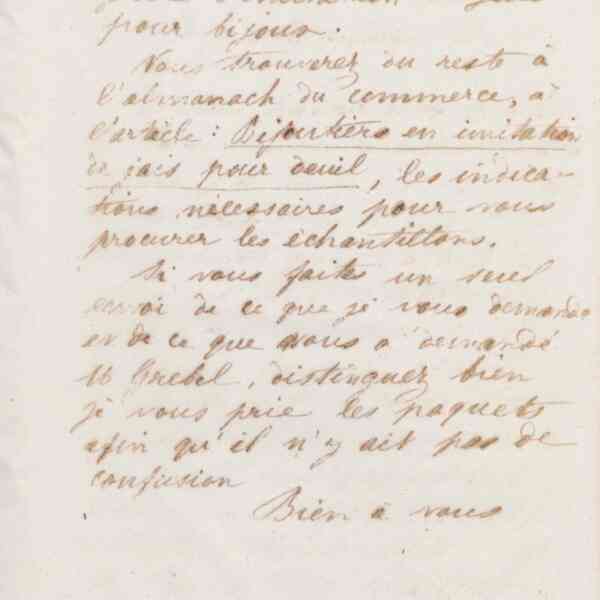 pour bijoux.
Vous trouverez du reste à
l'almanach du commerce, à
l'article : Bijoutiers en imitation
de jais pour deuil, les indica-
tions nécessaires pour vous
procurer les échantillons.
Si vous faites un seul
envoi de ce que je vous demande
et de ce que vous a demandé
M Grebel, distinguez bien
je vous prie les paquets
afin qu'il n'y ait pas de
confusion
Bien à vous